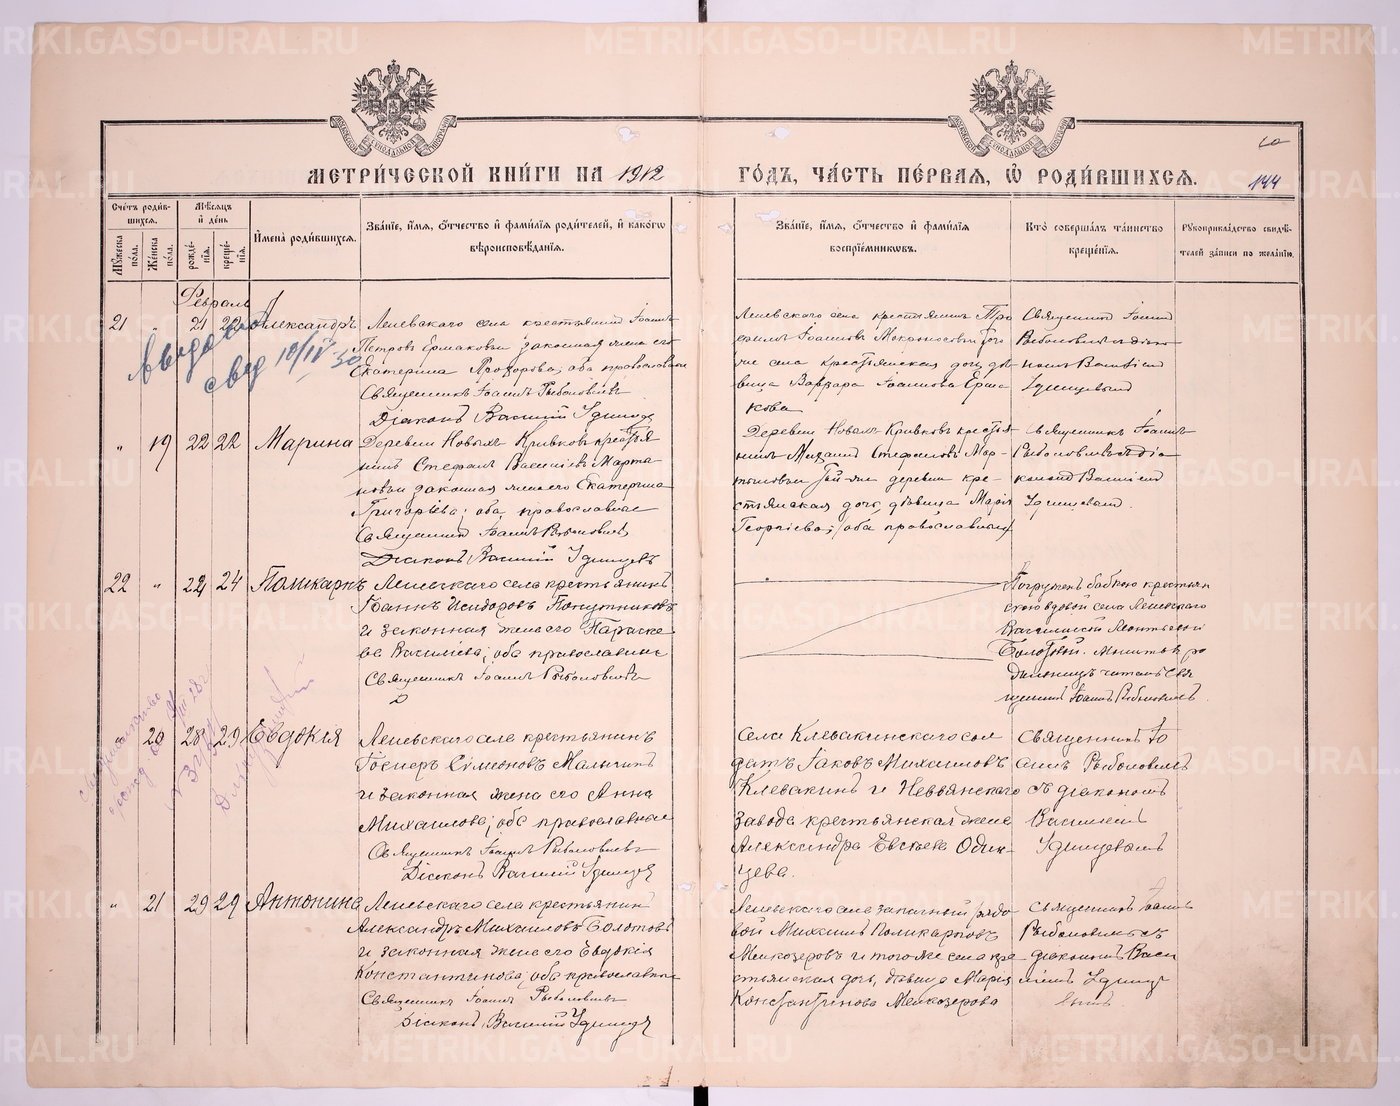 METRIKI.GASO-URAL.RU
МЕТРИ́ЧЕСКОЙ КНИ́ГИ НА 1912 ГО́ДЪ, ЧА́СТЬ ПЕ́РВАЯ, Ѡ РОДИ́ВШИХСЯ.
144
Сче́тъ роди́вшихся.
Мꙋ́жеска по́ла.
Же́нска по́ла.
Мѣ́сяцъ и҆ де́нь
рожде́нія.
креще́нія.
И҆мена̀ роди́вшихся.
Зва́ніе, и҆́мя, ѻ҆́тчество и҆ фами́лія роди́телей, и҆ како́гѡ вѣроисповѣ́данія.
Зва́ніе, и҆́мя, ѻ҆́тчество и҆ фами́лія воспріе́мникѡвъ.
Кто̀ соверша́лъ та́инство креще́нія.
Рꙋкоприкла́дство свидѣ́телей за́писи по жела́нію.
Февраль
21 " 21 22 Александръ
Леневскаго села крестьянинъ Іоаннъ
Петровъ Ермаковъ и законная жена его
Екатерина Прохорова; оба православные
Священникъ Іоаннъ Рыболовлевъ
Діаконъ Василій Удинцевъ
Леневскаго села крестьянинъ Тро
фимъ Іоанновъ
же села крестьянская дочь дѣ-
вица Варвара Іоаннова Ерма
кова
Священникъ Іоаннъ
Рыболовлевъ съ діако-
номъ Василіемъ
Удинцевымъ
" 19 22 22 Марина
Деревни Новыхъ Кривковъ крестья
нинъ Стефанъ Василіевъ Марты
новъ и законная жена его Екатерина
Григоріева; оба православные
Священникъ Іоаннъ Рыболовлевъ
Діаконъ Василій Удинцевъ
Деревни Новыхъ Кривковъ крестья
нинъ Михаилъ Стефановъ Мар-
тыновъ и той-же деревни кре-
стьянская дочь, дѣвица Марія
Георгіева; оба православные
Священникъ Іоаннъ
Рыболовлевъ съ діа
кономъ Василіемъ
Удинцевымъ.
22 " 22 24 Поликарпъ
Леневскаго села крестьянинъ
Іоаннъ Исидоровъ Попутниковъ
и законная жена его Параске
ва Василіева; оба православные
Священникъ Іоаннъ Рыболовлевъ
Погруженъ бабкою крестьян
скою вдовой села Леневскаго
Василисой Леонтьевой
Болотовой. Молитвы ро
дильницѣ читалъ Свя
щенникъ Іоаннъ Рыболовлевъ.
" 20 28 29 Евдокія
Леневскаго села крестьянинъ
Госперъ Симеоновъ Мальгинъ
и законная жена его Анна
Михаилова; оба православные
Священникъ Іоаннъ Рыболовлевъ
Діаконъ Василій Удинцевъ
Села Клевакинскаго сол
датъ Іаковъ Михаиловъ
Клевакинъ и Невьянскаго
завода крестьянская жена
Александра Евсѣева Один-
цева.
Священникъ Іо
аннъ Рыболовлевъ
съ діакономъ
Василіемъ
Удинцевымъ
" 21 29 29 Антонина
Леневскаго села крестьянинъ
Александръ Михаиловъ Болотовъ
и законная жена его Евдокія
Константинова; оба православные
Священникъ Іоаннъ Рыболовлевъ
Діаконъ Василій Удинцевъ
Леневскаго села запасный рядо
вой Михаилъ Поликарповъ
Мелкозеровъ и того же села кре
стьянская дочь, дѣвица Марія
Константинова Мелкозерова
Священникъ Іоаннъ
Рыболовлевъ съ
діакономъ Васи
ліемъ Удинце
вымъ.